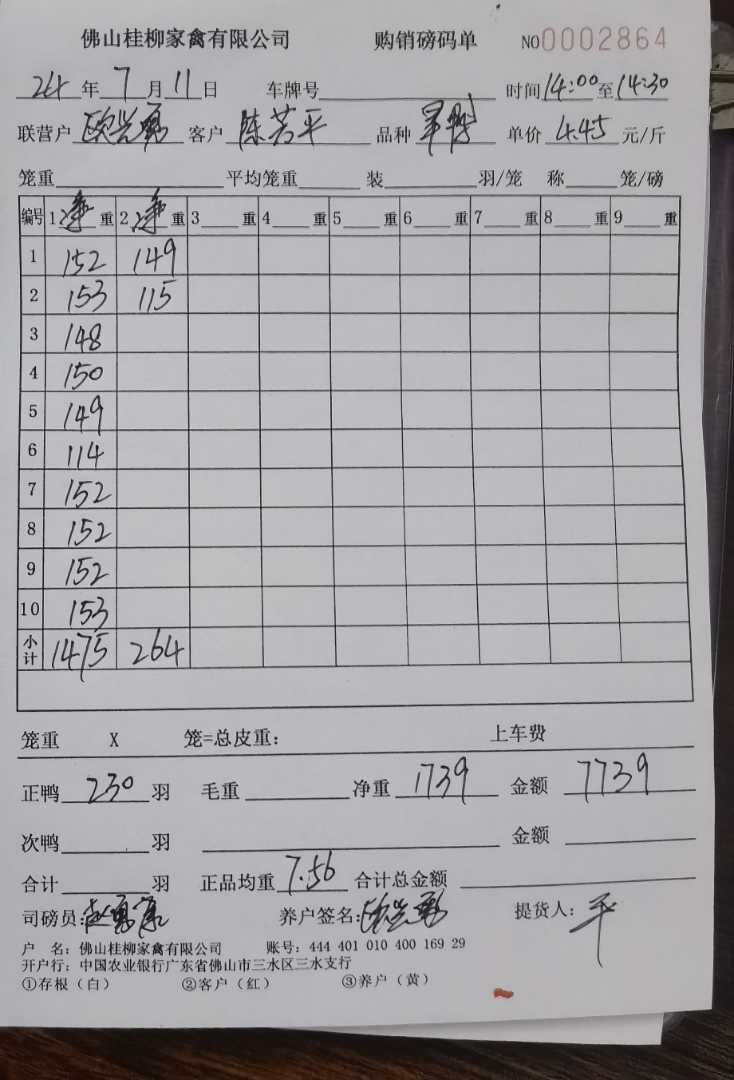 佛山桂柳家禽有限公司 购销磅码单 NO0002864
24年7月11日 车牌号 时间14:00至14:30
联营户 欧兰勇 客户 陈芳平 品种 单价 4.45 元/斤
笼重 平均笼重 装 羽/笼 称 笼/磅
编号 1净重 2净重 3重 4重 5重 6重 7重 8重 9重
1 152 149
2 153 115
3 148
4 150
5 149
6 114
7 152
8 152
9 152
10 153
小计 1475 264
笼重 X 笼=总皮重: 上车费
正鸭 230 羽 毛重 净重 1739 金额 7739
次鸭 羽 金额
合计 羽 正品均重 7.56 合计总金额
司磅员: 养户签名: 提货人: 平
户 名: 佛山桂柳家禽有限公司 账号: 444 401 010 400 169 29
开户行: 中国农业银行广东省佛山市三水区三水支行
①存根(白) ②客户(红) ③养户(黄)